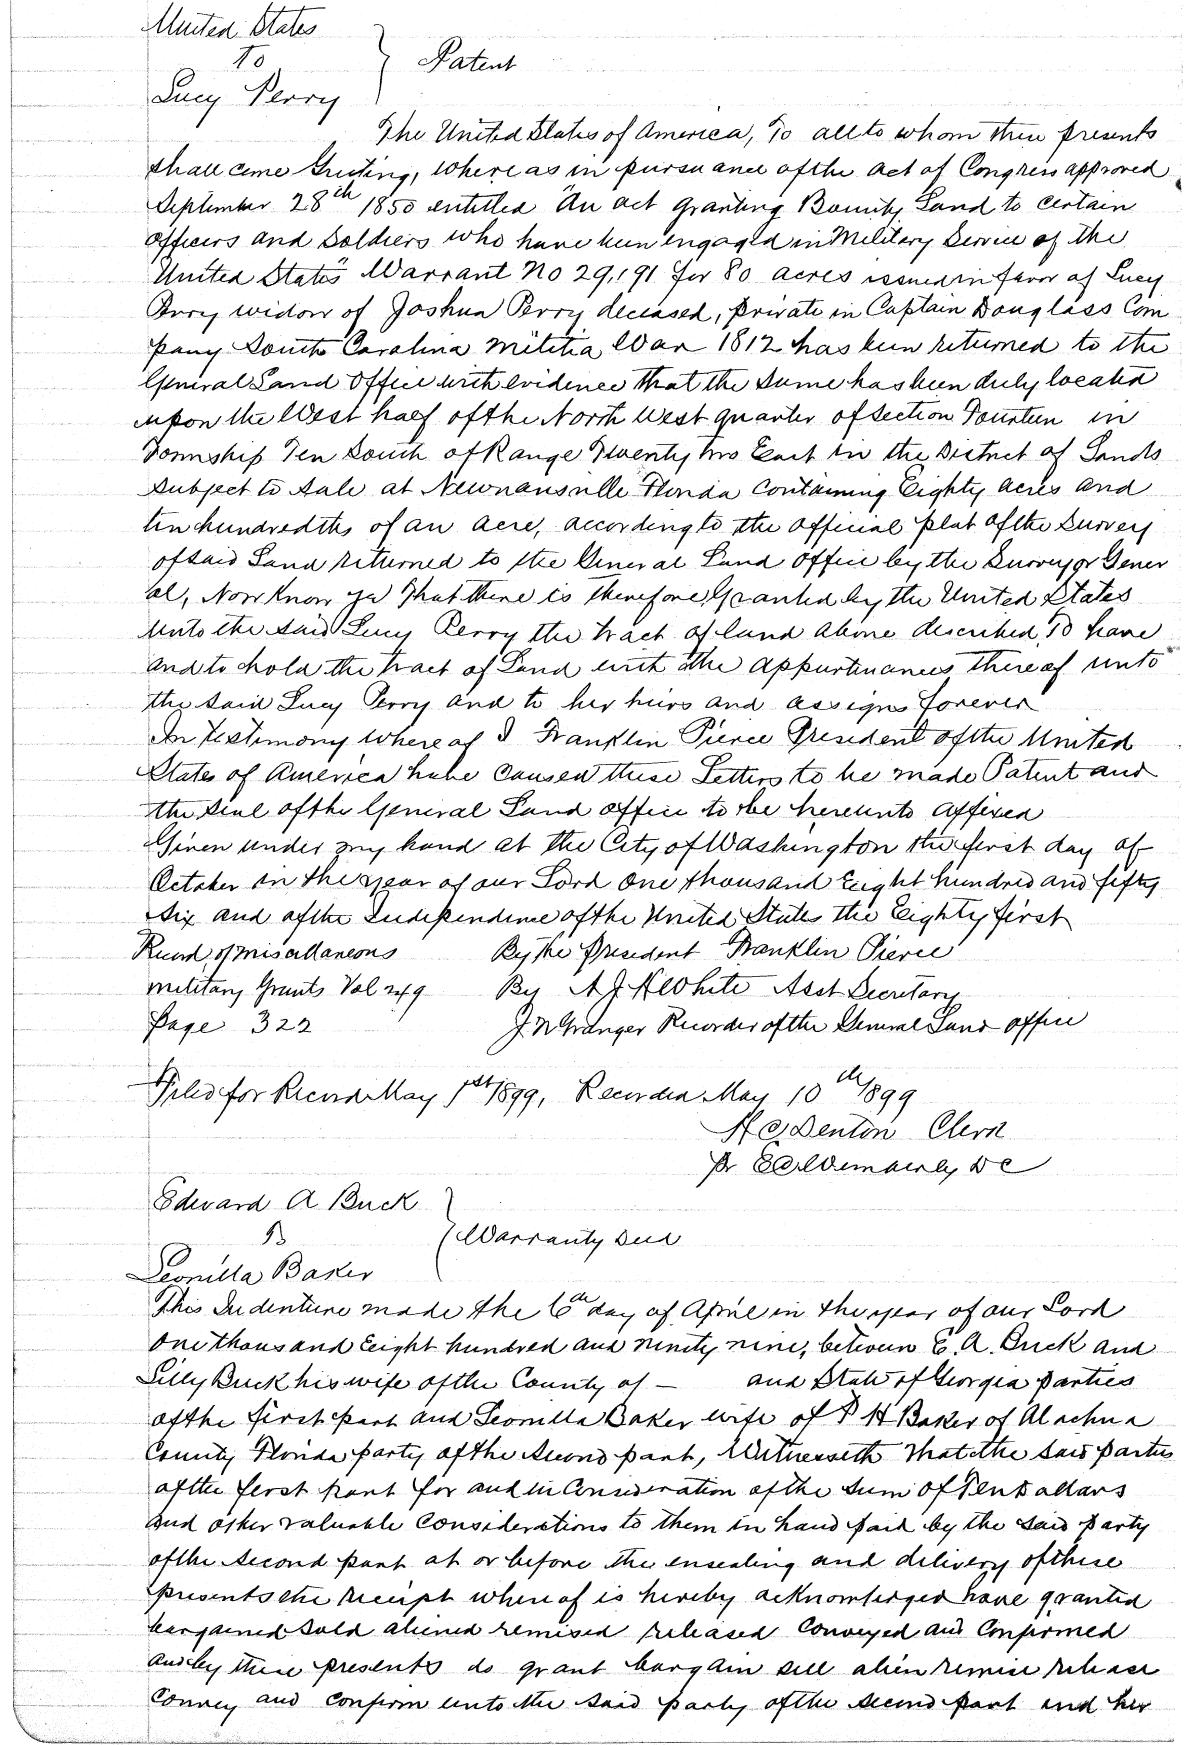 United States
To } Patent
Lucy Perry
The United States of America, To all to whom these presents
shall come Greeting, Where as in pursuance of the act of Congress approved
September 28th 1850 entitled "An act granting Bounty Land to certain
officers and Soldiers who have been engaged in Military Service of the
United States" Warrant No 29,191 for 80 acres issued in favor of Lucy
Perry widow of Joshua Perry deceased, private in Captain Douglass Com
pany South Carolina Militia War 1812 has been returned to the
General Land Office with evidence that the same has been duly located
upon the West half of the North West quarter of Section Fourteen in
Township Ten South of Range Twenty two East in the District of Lands
Subject to Sale at Newnansville Florida Containing Eighty acres and
ten hundredths of an acre, according to the official plat of the Survey
of said Land returned to the General Land office by the Surveyor Gener
al, Now Know ye That there is therefore Granted by the United States
unto the said Lucy Perry the tract of land above described To have
and to hold the tract of Land with the appurtinances thereof unto
the said Lucy Perry and to her heirs and assigns forever
In testimony where of I Franklin Pierce President of the United
States of America have caused these Letters to be made Patent and
the Seal of the General Land office to be hereunto affixed
Given under my hand at the City of Washington the first day of
October in the year of our Lord One thousand Eight hundred and fifty
six and of the Independence of the United States the Eighty first
Record of miscellaneous By the President Franklin Pierce
Military Grants Vol 249 By A J N White Asst Secretary
Page 322 J N Granger Recorder of the General Land office
Filed for Record May 1st 1899, Recorded May 10th 1899
H C Denton Clerk
Pr D C
Edward A Buck
To } Warranty Deed
Leonilla Baker
This Indenture made the 6th day of April in the year of our Lord
one thousand Eight hundred and ninety nine, between E. A. Buck and
Lilly Buck his wife of the County of — and State of Georgia parties
of the first part and Leonilla Baker wife of P H Baker of Alachua
County Florida party of the Second part, Witnesseth That the said parties
of the first part for and in Consideration of the sum of Ten Dollars
and other valuable Considerations to them in hand paid by the said party
of the second part at or before the ensealing and delivery of these
presents the receipt where of is hereby acknowledged have granted
bargained Sold aliened remised released Conveyed and Confirmed
and by these presents do grant bargain sell alien remise release
Convey and Confirm unto the said party of the second part and her